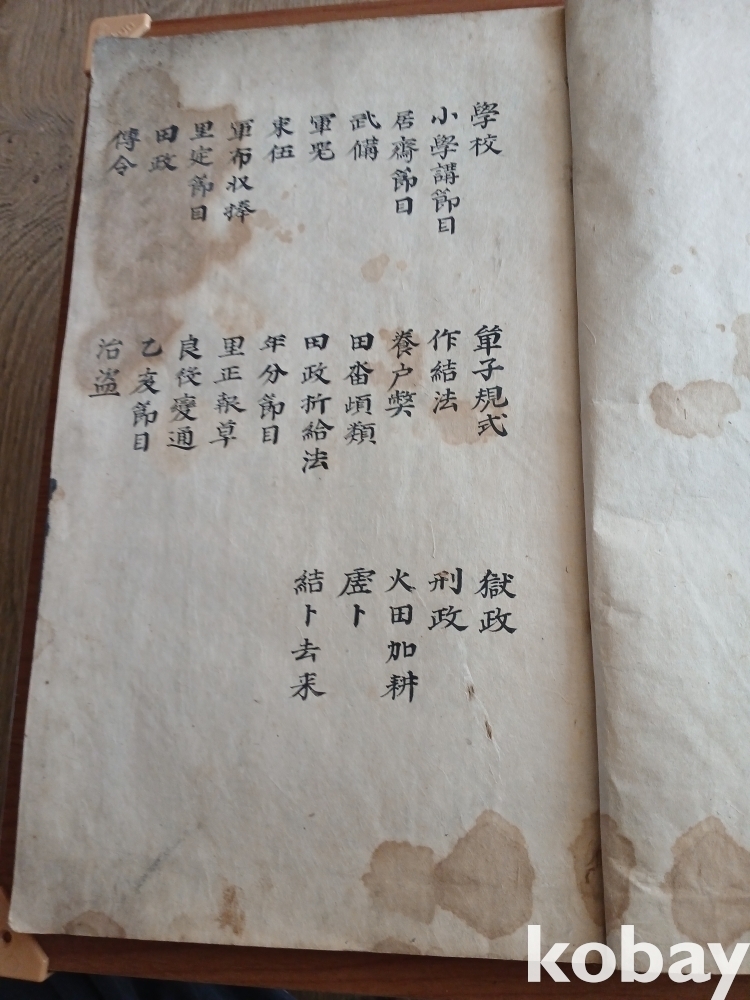 學校
小學講節目
居齋節目
武備
軍
束伍
軍布収捧
里定節目
田政
傳令
單子規式
作結法
養户弊
田畓頉類
田政折給法
年分節目
里正報草
良役變通
乙亥節目
治盗
獄政
刑政
火田加耕
虛卜
結卜去来
kobay